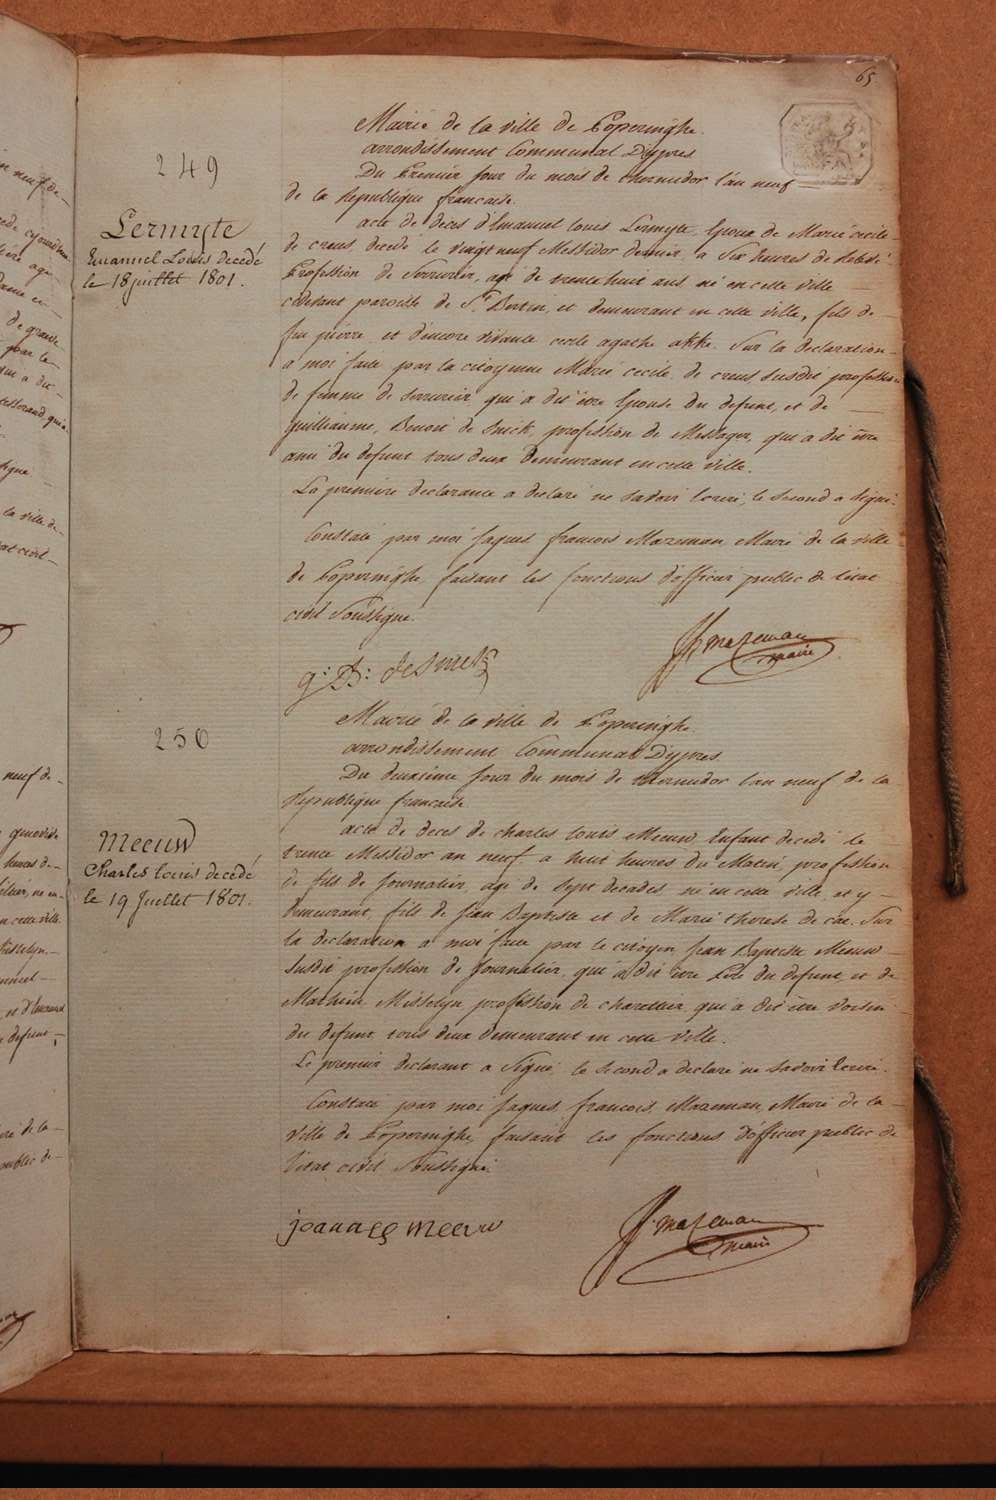 65
249
Lermyte
Emanuel Louis decedé
le 18 juillet 1801.
Mairie de la ville de Poperinghe.
arrondissement Communal D'ypres
Du Premier jour du mois de thermidor l'an neuf
de la Republique francaise.
acte de deces d'Emanuel Louis Lermyte Epoux de Marie cecile
de creus, decedé le vingt neuf Messidor dernier, a Six heures de
Profession de Serrurier, agé de trente huit ans né en cette ville
cidevant paroisse de St. Bertin, et demeurant en cette ville, fils de
feu pierre, et d'encore vivante cecile agathe Sur la declaration
a moi faite par la citoyenne Marie cecile de creus susdit profession
de femme de serrurier qui a dit être Epouse du defunt, et de
guilliaume, Benoit de Smet, profession de Messager, qui a dit être
ami du defunt tous deux demeurant en cette ville.
La premiere declarante a declaré ne savoir Ecrire, le second a signé.
Constaté par moi jaques francois Mazeman, Maire de la ville
de Poperinghe, faisant les fonctions d'officier public de l'etat
civil Soussigné.
g: B: desmet
JF mazeman
maire
250
Meeuw
Charles louis decedé
le 19 Juillet 1801.
Mairie de la ville de Poperinghe
arrondissement Communal D'ypres.
Du deuxieme jour du mois de thermidor l'an neuf de la
Republique francaise
acte de deces de charles louis Meeuw Enfant decedé le
trente Messidor an neuf a huit heures du Matin, profession
de fils de journalier, agé de sept decades né en cette ville et y
demeurant, fils de jean Baptiste et de Marie therese de Sur
la declaration a moi faite par le citoyen jean Baptiste Meeuw
susdit profession de journalier, qui a dit être Pere du defunt, et de
Mathieu Misselyn profession de charettier qui a dit être voisin
du defunt tous deux demeurant en cette ville.
Le premier declarant a signé, le second a declaré ne savoir Ecrire.
Constaté par moi jaques francois Mazeman, Maire de la
ville de Poperinghe, faisant les fonctions d'officier public de
l'etat civil Soussigné.
joannes meeuw
JF mazeman
maire